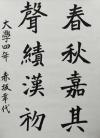 春秋嘉其
聲績漢初
大學四年 赤坂幸代